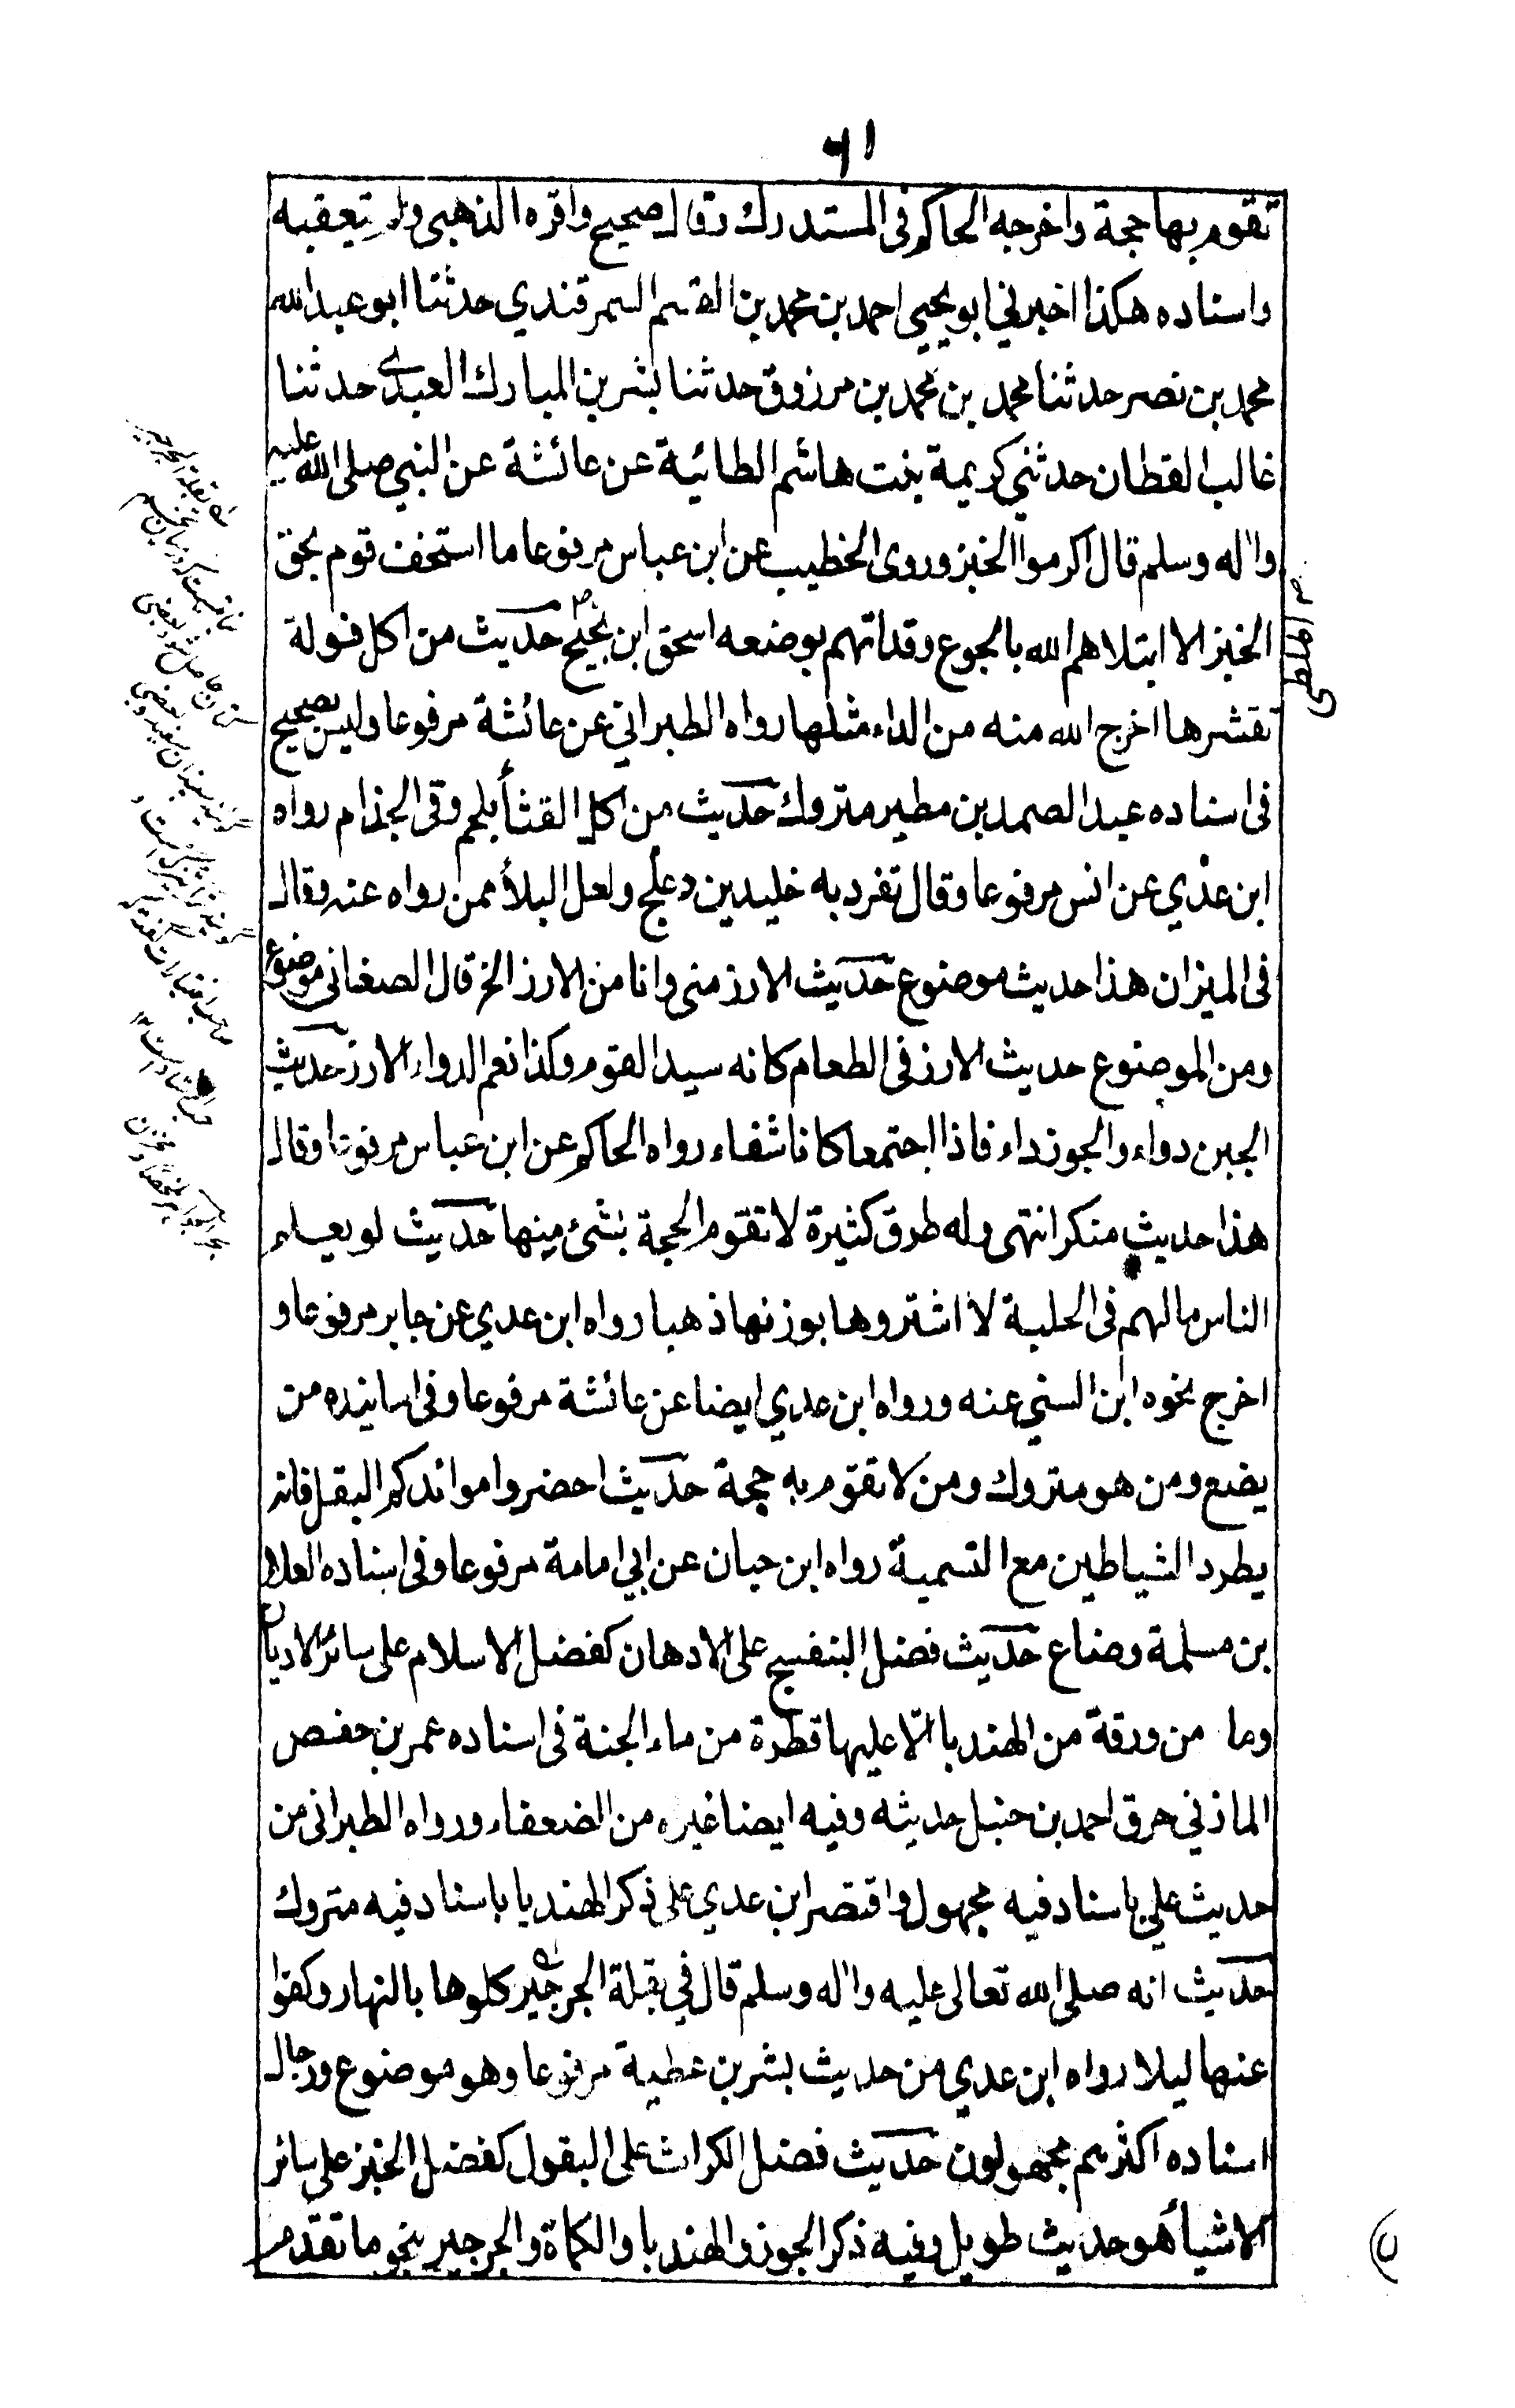 ٦١
تقوم بها حجة واخرجه الحاكم فى المستدرك وقال صحيح واقره الذهبى ولم يتعقبه
واسناده هكذا اخبرني ابو يحيى احمد بن محمد بن القسم السمرقندي حدثنا ابو عبد الله
محمد بن نصر حدثنا محمد بن محمد بن مرزوق حدثنا بشر بن المبارك العبدى حدثنا
غالب القطان حدثني كريمة بنت هاشم الطائية عن عائشة عن النبي صلى الله عليه
واله وسلم قال اكرموا الخبز وروى الخطيب عن ابن عباس مرفوعا ما استخف قوم بحق
الخبز الا ابتلاهم الله بالجوع وقد اتهم بوضعه اسحق ابن نجيح حديث من اكل فولة
بقشرها اخرج الله منه من الداء مثلها رواه الطبراني عن عائشة مرفوعا وليس بصحيح
فى اسناده عبد الصمد بن مطير متروك حديث من اكل القثأ بلحم وقى الجذام رواه
ابن عدي عن انس مرفوعا وقال تفرد به خليد بن دعلج ولعل البلأ ممن رواه عنه وقال
فى الميزان هذا حديث موضوع حديث الارز منى وانا من الارز الخ قال الصغانى موضوع
ومن الموضوع حديث الارز فى الطعام كانه سيد القوم وكذا نعم الدواء الارز حديث
الجبن دواء والجوز داء فاذا اجتمعا كانا شفاء رواه الحاكم عن ابن عباس مرفوعا وقال
هذا حديث منكر انتهى وله طرق كثيرة لا تقوم الحجة بشئ منها حديث لو يعلم
الناس ما لهم فى الحلبة لا اشتروها بوزنها ذهبا رواه ابن عدي عن جابر مرفوعا و
اخرج نحوه ابن السني عنه ورواه ابن عدي ايضا عن عائشة مرفوعا وفى اسانيده من
يضع ومن هو متروك ومن لا تقوم به حجة حديث احضروا موائدكم البقل فانه
يطرد الشياطين مع التسمية رواه ابن حبان عن ابي امامة مرفوعا وفى اسناده العلاء
بن مسلمة وضاع حديث فضل البنفسج على الادهان كفضل الاسلام على سائر الاديان
وما من ورقة من الهندبا الّا عليها قطرة من ماء الجنة فى اسناده عمر بن حفص
المازني حرق احمد بن حنبل حديثه وفيه ايضا غيره من الضعفاء ورواه الطبرانى من
حديث علي باسناد فيه مجهول واقتصر ابن عدي على ذكر الهندبا باسناد فيه متروك
حديث انه صلى الله تعالى عليه واله وسلم قال في بقلة الجرجير كلوها بالنهار وكفوا
عنها ليلا رواه ابن عدي من حديث بشر بن عطية مرفوعا وهو موضوع ورجال
اسناده اكثرهم مجهولون حديث فضل الكراث على البقول كفضل الخبز على سائر
الاشيأ هو حديث طويل وفيه ذكر الجوز والهندبا والكماة والجرجير بنحو ما تقدم